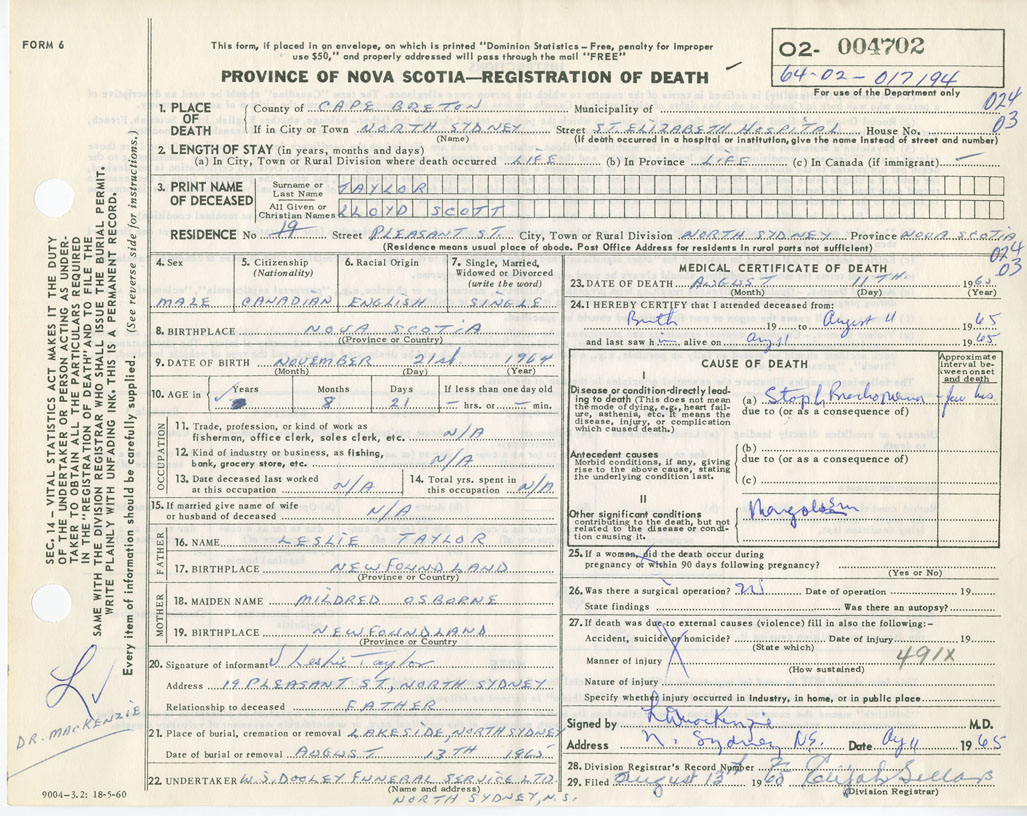 FORM 6
This form, if placed in an envelope, on which is printed "Dominion Statistics – Free, penalty for improper
use $50," and properly addressed will pass through the mail "FREE"
PROVINCE OF NOVA SCOTIA—REGISTRATION OF DEATH
02- 004702
64-02-017194
For use of the Department only
024
03
1. PLACE OF DEATH
County of CAPE BRETON Municipality of
If in City or Town NORTH SYDNEY Street ST. ELIZABETH HOSPITAL House No.
(Name) (If death occurred in a hospital or institution, give the name instead of street and number)
2. LENGTH OF STAY (in years, months and days)
(a) In City, Town or Rural Division where death occurred LIFE (b) In Province LIFE (c) In Canada (if immigrant) —
3. PRINT NAME OF DECEASED
Surname or Last Name TAYLOR
All Given or Christian Names LLOYD SCOTT
RESIDENCE No 19 Street PLEASANT ST. City, Town or Rural Division NORTH SYDNEY Province NOVA SCOTIA
(Residence means usual place of abode. Post Office Address for residents in rural parts not sufficient)
024
03
4. Sex MALE
5. Citizenship (Nationality) CANADIAN
6. Racial Origin ENGLISH
7. Single, Married, Widowed or Divorced (write the word) SINGLE
8. BIRTHPLACE NOVA SCOTIA
(Province or Country)
9. DATE OF BIRTH NOVEMBER 21st 1964
(Month) (Day) (Year)
10. AGE in Years Months 8 Days 21 If less than one day old – hrs. or – min.
OCCUPATION
11. Trade, profession, or kind of work as fisherman, office clerk, sales clerk, etc. N/A
12. Kind of industry or business, as fishing, bank, grocery store, etc. N/A
13. Date deceased last worked at this occupation N/A
14. Total yrs. spent in this occupation N/A
15. If married give name of wife or husband of deceased N/A
FATHER
16. NAME LESLIE TAYLOR
17. BIRTHPLACE NEWFOUNDLAND
(Province or Country)
MOTHER
18. MAIDEN NAME MILDRED OSBORNE
19. BIRTHPLACE NEWFOUNDLAND
(Province or Country)
20. Signature of informant Leslie Taylor
Address 19 PLEASANT ST, NORTH SYDNEY
Relationship to deceased FATHER
21. Place of burial, cremation or removal LAKESIDE, NORTH SYDNEY
Date of burial or removal AUGUST 13TH 1965
22. UNDERTAKER W.S. DOOLEY FUNERAL SERVICE LTD.
(Name and address)
NORTH SYDNEY, N.S.
MEDICAL CERTIFICATE OF DEATH
23. DATE OF DEATH AUGUST 11TH 1965
(Month) (Day) (Year)
24. I HEREBY CERTIFY that I attended deceased from:
Birth 19 to August 11 1965
and last saw him alive on Aug 11 1965
CAUSE OF DEATH
Approximate interval between onset and death
I
Disease or condition directly leading to death (This does not mean the mode of dying, e.g., heart failure, asthenia, etc. It means the disease, injury, or complication which caused death.)
(a) Staph few hrs
due to (or as a consequence of)
Antecedent causes
Morbid conditions, if any, giving rise to the above cause, stating the underlying condition last.
(b)
due to (or as a consequence of)
(c)
II
Other significant conditions
contributing to the death, but not related to the disease or condition causing it.
Mongolism
25. If a woman, did the death occur during
pregnancy or within 90 days following pregnancy?
(Yes or No)
26. Was there a surgical operation? No Date of operation 19
State findings Was there an autopsy?
27. If death was due to external causes (violence) fill in also the following:–
Accident, suicide or homicide? Date of injury 19
(State which)
Manner of injury
491X
(How sustained)
Nature of injury
Specify whether injury occurred in industry, in home, or in public place
Signed by MacKenzie M.D.
Address N. Sydney NS. Date Aug 11 1965
28. Division Registrar's Record Number
29. Filed August 13th 19 Elijah Sellars
(Division Registrar)
SEC. 14 – VITAL STATISTICS ACT MAKES IT THE DUTY
OF THE UNDERTAKER OR PERSON ACTING AS UNDER-
TAKER TO OBTAIN ALL THE PARTICULARS REQUIRED
IN THE "REGISTRATION OF DEATH" AND FILE THE
SAME WITH THE DIVISION REGISTRAR WHO SHALL ISSUE THE BURIAL PERMIT.
WRITE PLAINLY WITH UNFADING INK. THIS IS A PERMANENT RECORD.
Every item of information should be carefully supplied. (See reverse side for instructions.)
DR. MACKENZIE
9004–3.2: 18-5-60